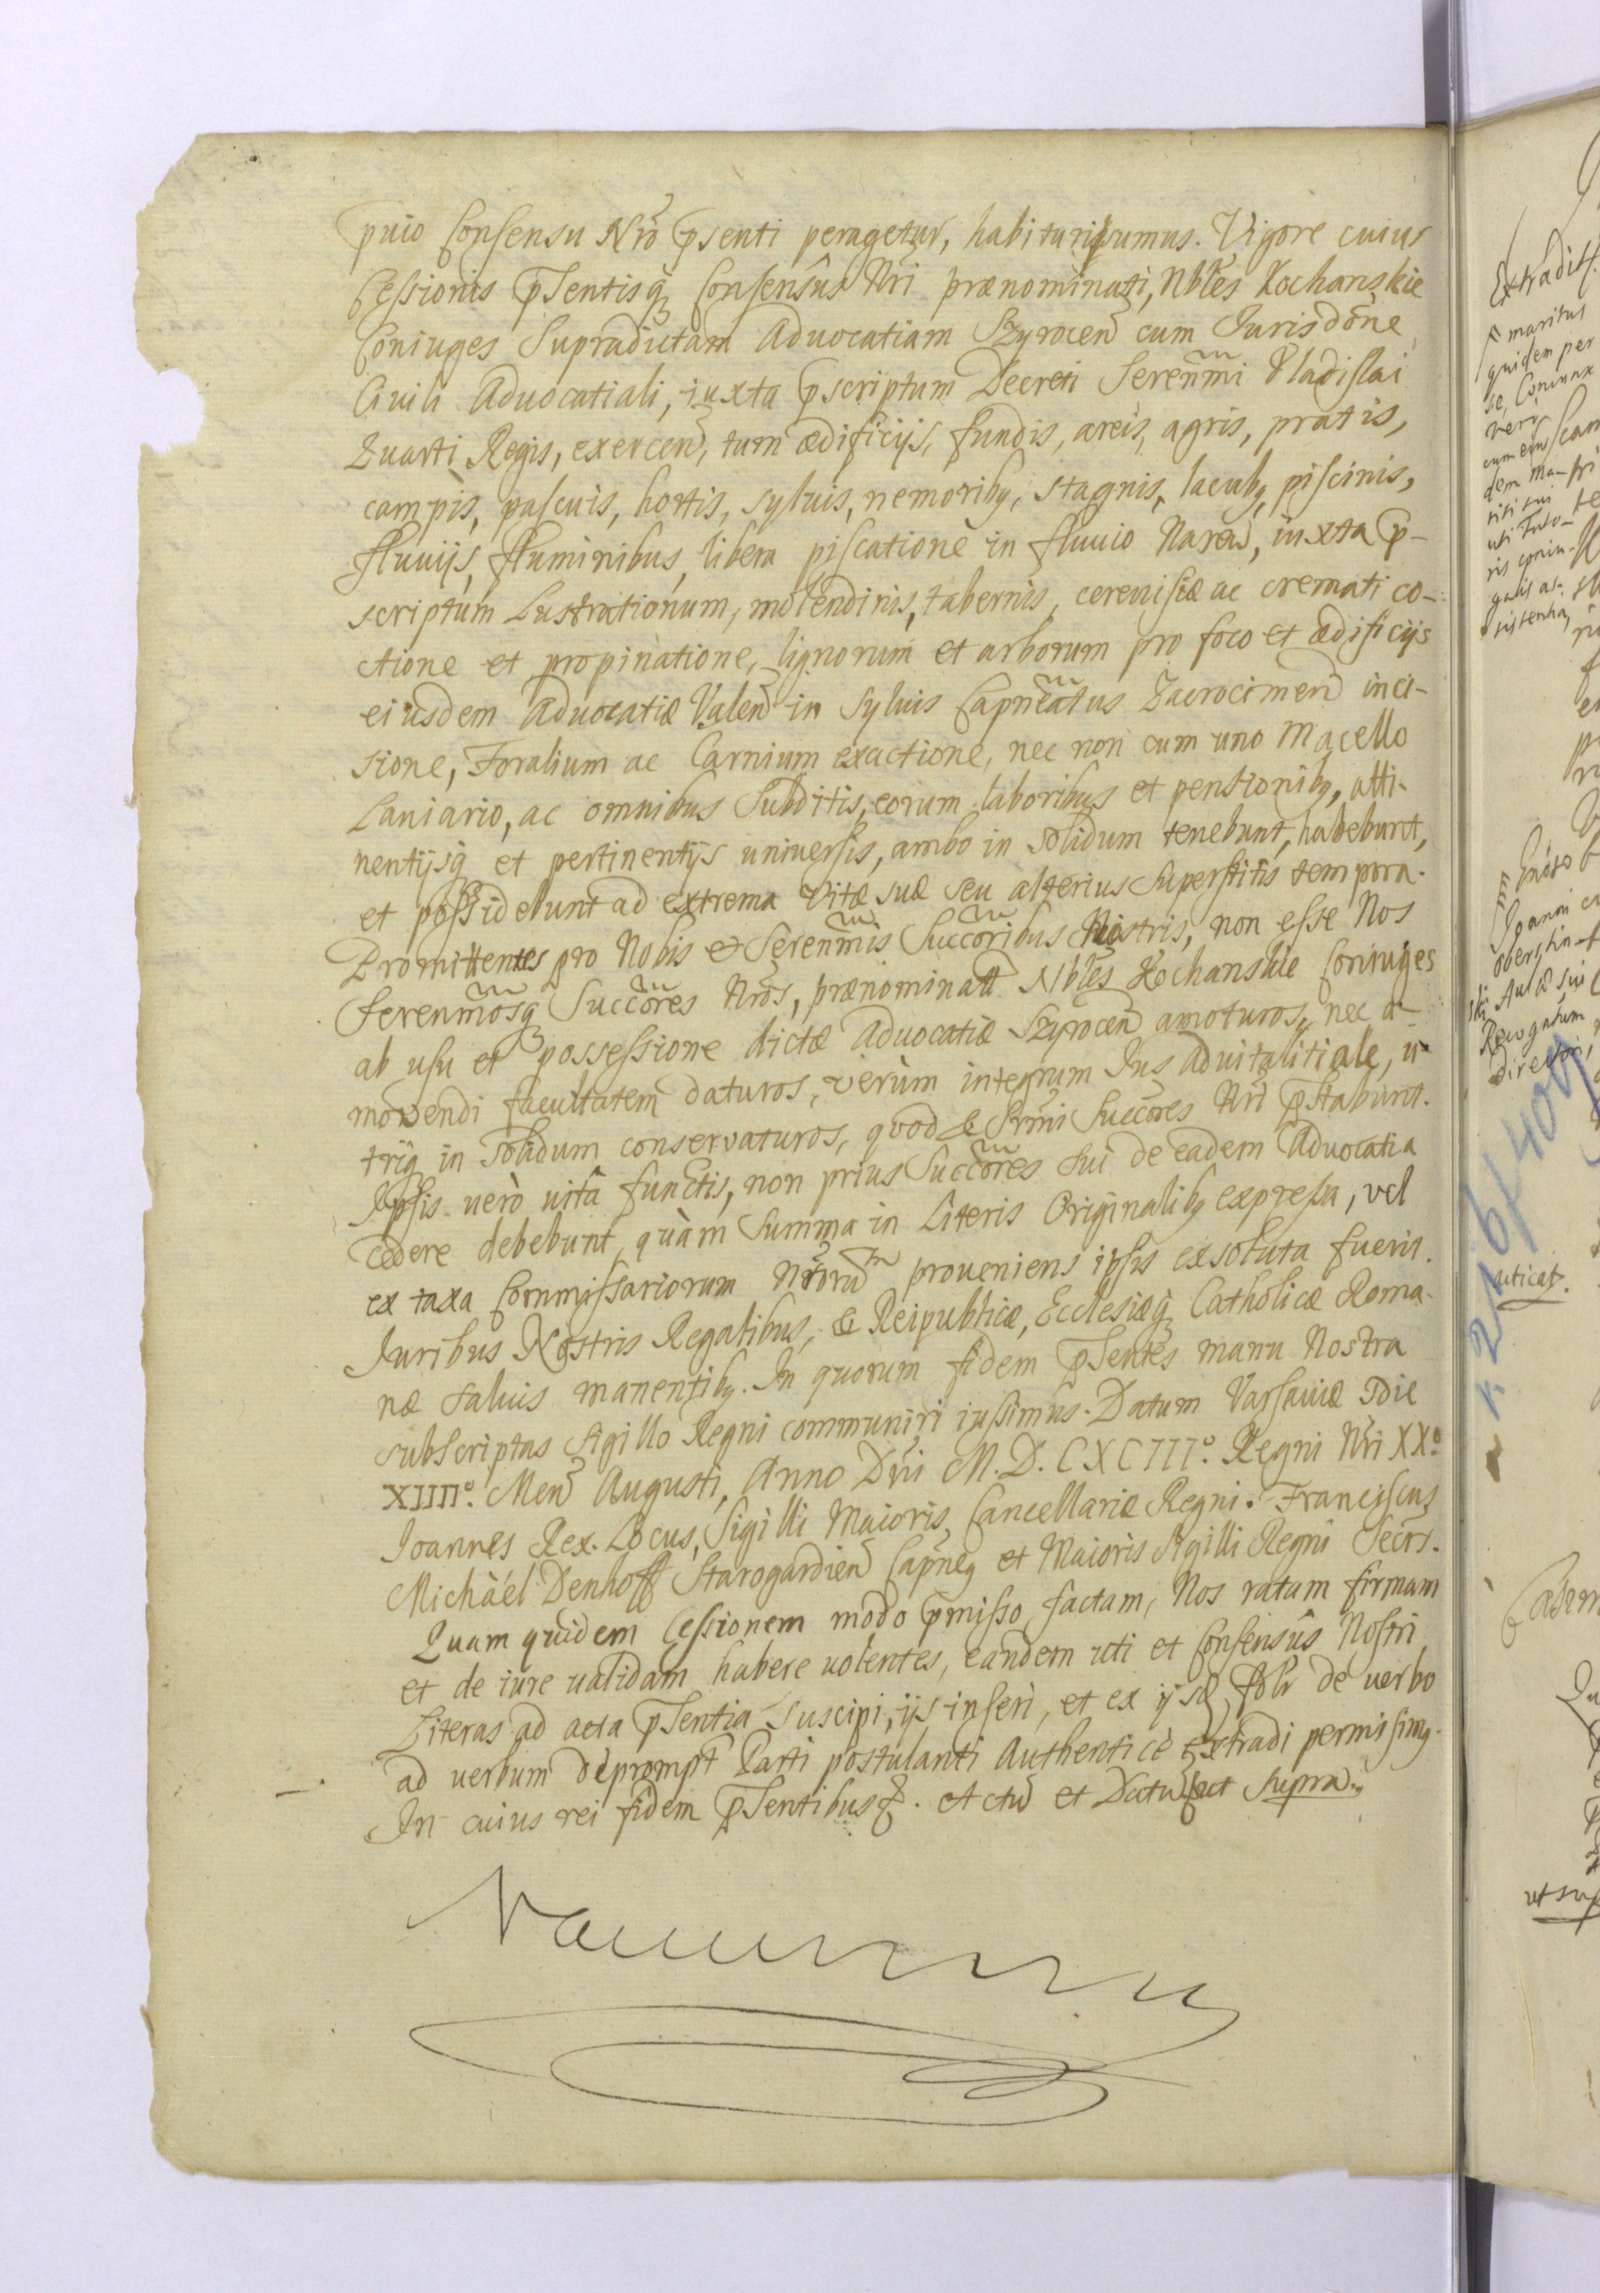 pvio Consensu Nrõ pſenti peragetur, habituri sumus. Vigore cuius
Ceſsionis pſentisq; Conſensûs Nri prænominati, Nbles Kochanskie
Coniuges Supradictam Aduocatiam Szyrocen̄ cum Jurisdõne
Ciuili Aduocatiali, iuxta pſcriptum Decreti Seren̄mi Vladiſlai
Quarti Regis, exercen̄, tum ædificijs, fundis, areis, agris, pratis,
campis, paſcuis, hortis, syluis, nemoribq, stagnis, lacubq, piſcinis,
fluuijs, fluminibus, libera piſcatione in fluuio Narew, iuxta p-
scriptum Lustrationum, molendinis, tabernis, cereuiſiæ ac cremati co-
ctione et propinatione, lignorum et arborum pro foco et ædificijs
eiusdem Aduocatiæ Valen̄ in Syluis Capneatus Zacrocimen̄ inci-
sione, Foralium ac Carnium exactione, nec non cum uno Macello
Laniario, ac omnibus Subditis, eorum laboribus et pensionibq, atti-
nentijsq; et pertinentijs uniuerſis, ambo in solidum tenebunt, habebunt,
et poſsidebunt ad extrema Vitæ suæ seu alterius Superſtitis tempora.
Promittentes pro Nobis et Seren̄mis Succoribus Nostris, non eſse Nos
Seren̄mosq; Succores Nros, prænominatt Nbles Kochanskie Coniuges
ab uſu et poſseſsione dictæ Aduocatiæ Szyrocen̄ amoturos, nec a-
movendi facultatem daturos, verùm integrum Jus aduitalitiale, u-
triq; in solidum conservaturos, quod & Srmi Succores Nri pſtabunt.
Ipſis verò uitâ functis, non prius Succores sui de eadem Aduocatia
cedere debebunt, quàm Summa in Literis Originalibq expreſsa, vel
ex taxa Commiſsariorum Nrorũ proueniens ipſis exsoluta fuerit.
Iuribus Nostris Regalibus, & Reipublicæ, Ecclesiæq; Catholicæ Roma-
næ saluis manentibq. In quorum fidem pſentes manu Nostra
subscriptas Sigillo Regni communiri iuſsimus. Datum Varsauiæ Die
XIIII°. Men̄ Augusti, Anno Dni M.D.CXCIII°. Regni Nri XX°.
Joannes Rex. Locus, Sigilli Maioris, Cancellariæ Regni. Franciſcus
Michäel Denhoff Starogardien̄ Capneq et Maioris Sigilli Regni Secrs.
Quam quidem Ceſsionem modo pmiſso factam, Nos ratam firmam
et de iure validam habere uolentes, eandem uti et Conſensûs Noſtri
Literas ad acta pſentia Suscipi, ijs inſeri, et ex ijsd de verbo
ad verbum deprompt Parti postulanti Authenticè Extradi permiſimq.
In cuius rei fidem pſentibus &. Actũ et Datũ ut Supra.
Extradit.
maritus
quidem per
se, Coniunx
vero
cum eius
dem Ma-
riti sui
uti Tuto-
ris coniu-
galis as-
sistentia
Aulæ
director
r. 216/409
ut sup